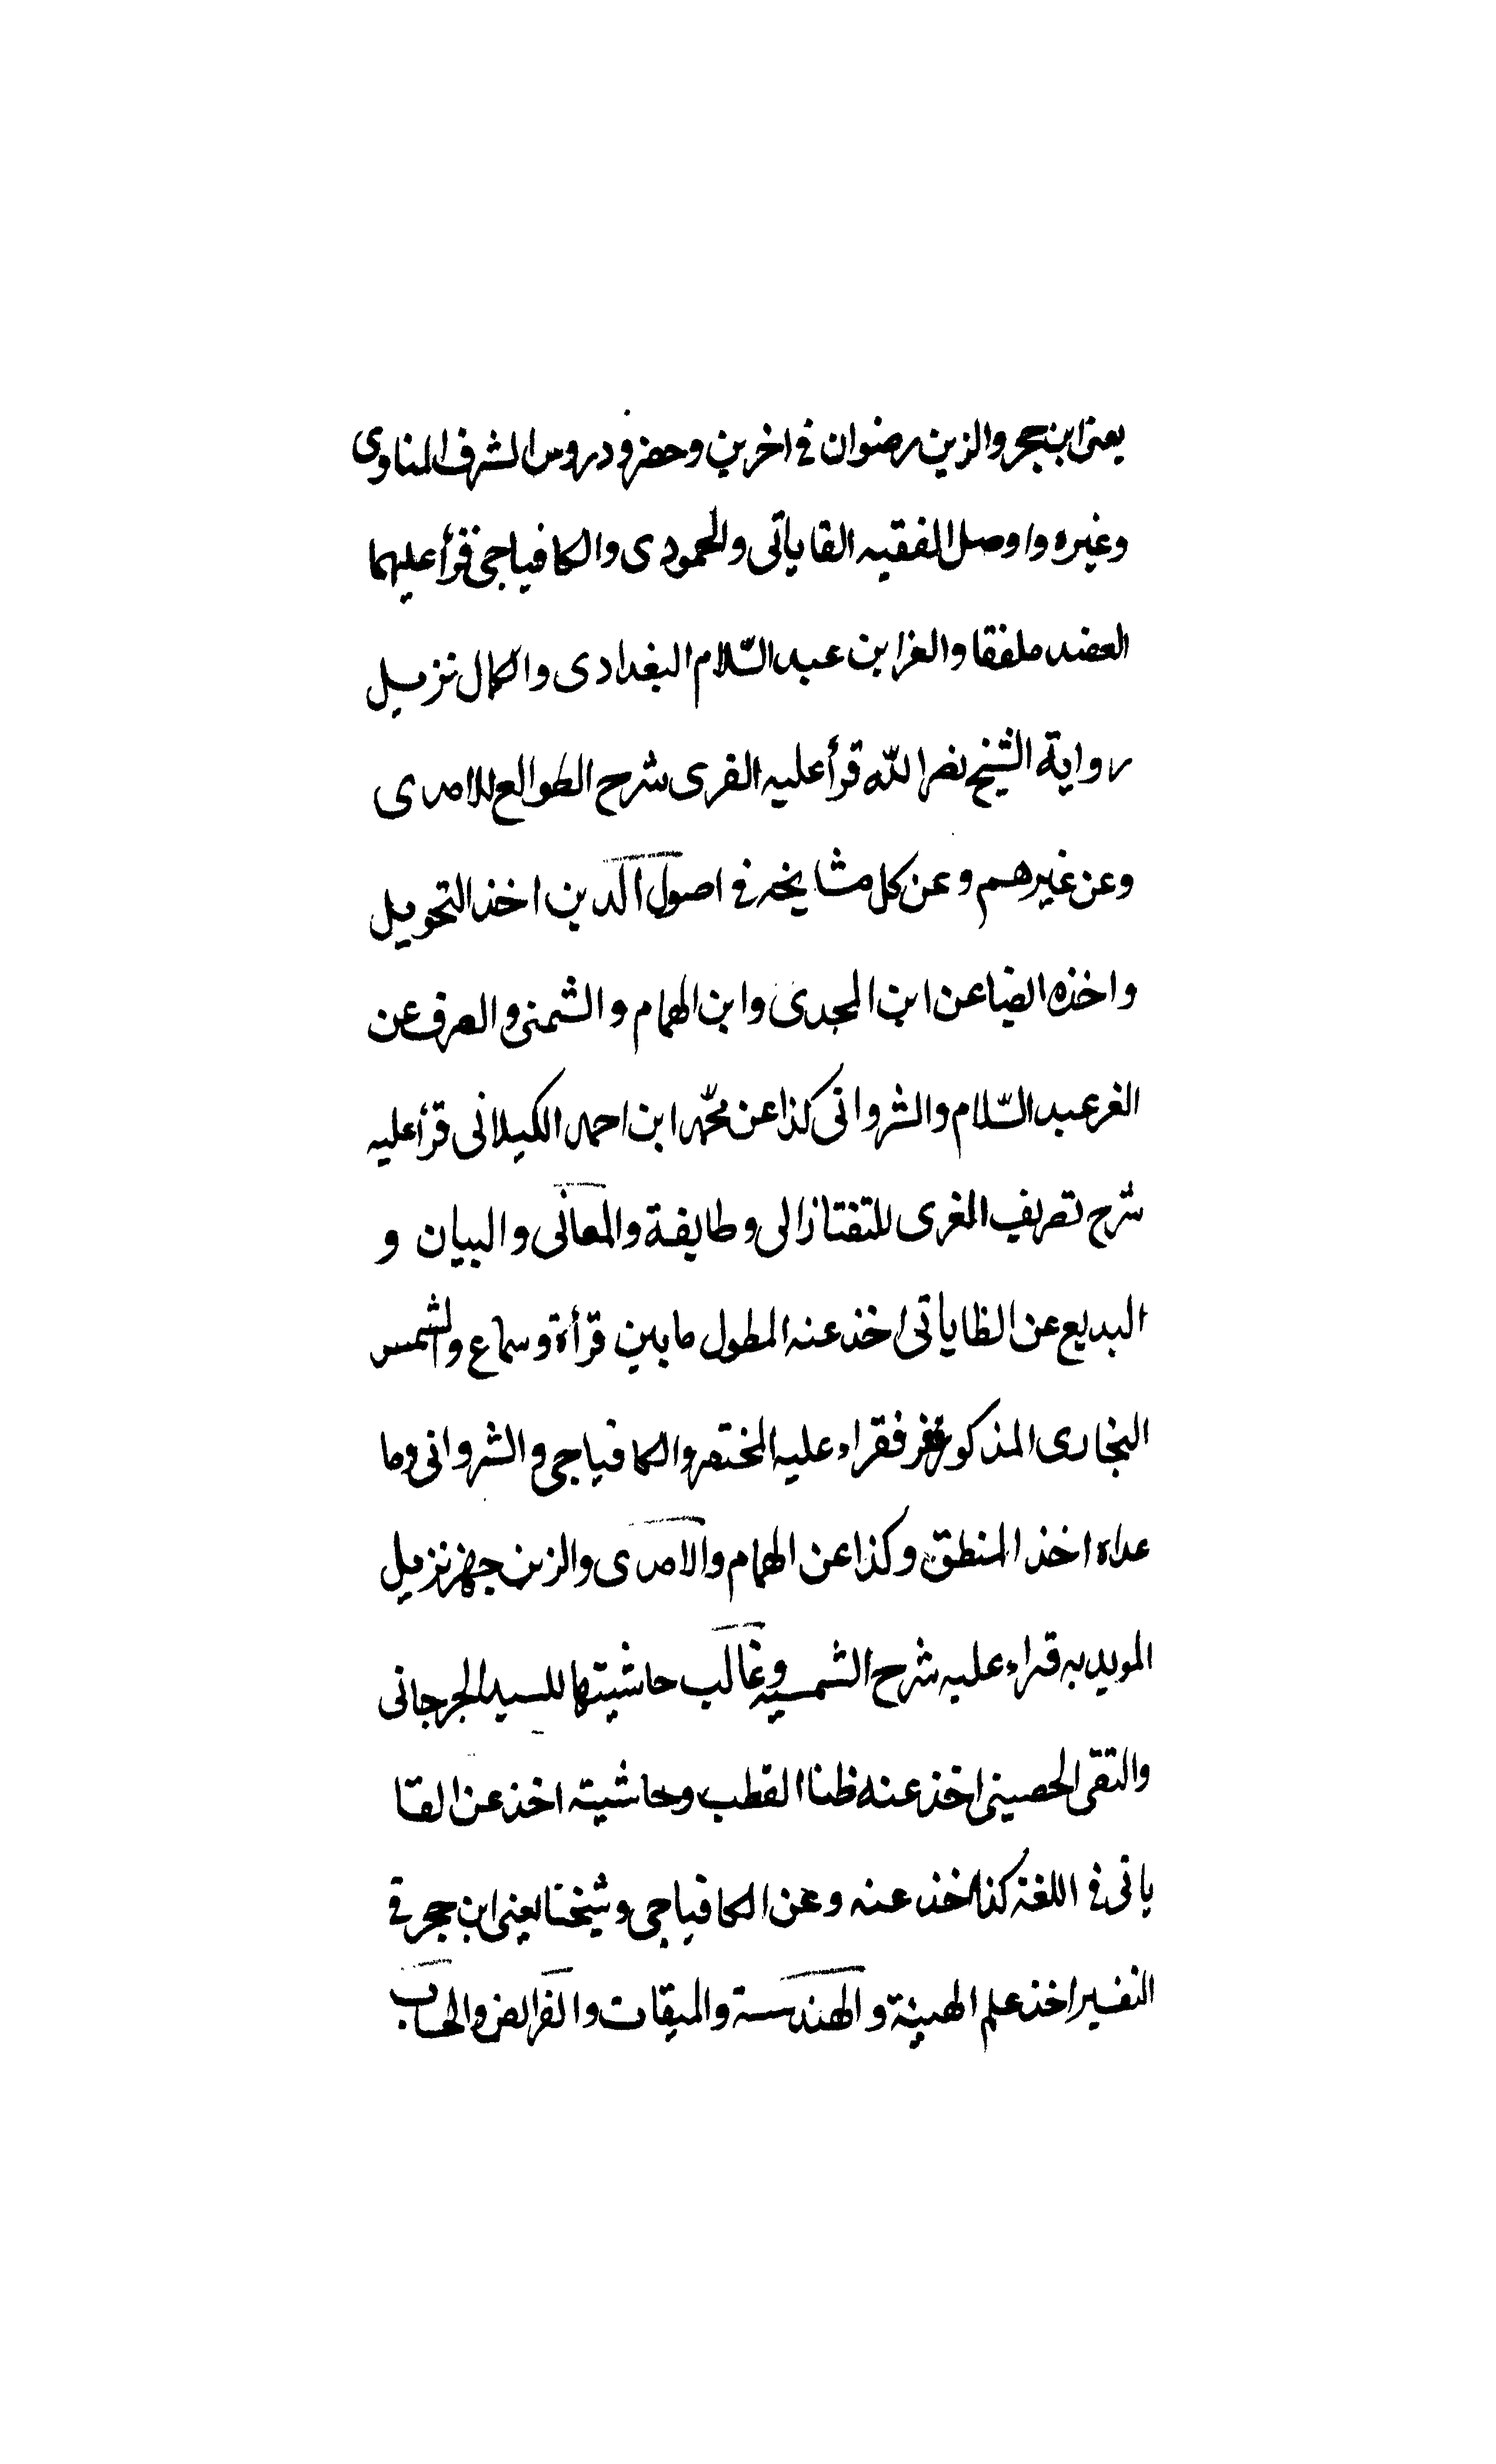 يعنى ابن حجر والزين رضوان فى اخرين وحضر ودروس الشرف المناوى
وغيره واوصل الفقيه القاياتى والمحمودى والكافياجى فقرأ عليهما
العضد ملفقا والغر ابن عبد السّلام البغدادى والكمال نزيل
رواية الشيخ نصر اللّه قرأ عليه الفرى شرح الطوالع للامدى
وعن غيرهم وعن كل مشايخه فى اصول الدين اخذ التحويل
واخذه ايضا عن ابن المجدى وابن الهمام والشمنى والصرف عن
الغر عبد السّلام والشروانى كذا عن محمّد ابن احمد الكيلانى قرأ عليه
شرح تصريف المغرى للتفتازالى وطايفة والمعانى والبيان و
البديع عن الظاياتى اخذ عنه المطول ما بين قرأة وسماع والشمس
البخارى المذكور فقراء عليه المختصر والكافياجى والشروانى وما
عداه اخذ المنطق وكذا عن الهمام والامدى والزين جهز نزيل
المويديه قراء عليه شرح الشمسيه وغالب حاشيتها للسيد الجرجانى
والتقى الحصينى اخذ عنه ظنا القطب وحاشيته اخذ عن القا
ياتى فى اللغة كذا اخذ عنه وعن الكافياجى وشيخنا يعنى ابن حجر فى
التفسير اخذ علم الهيئة والهندسة والميقات والفرائض والحساب